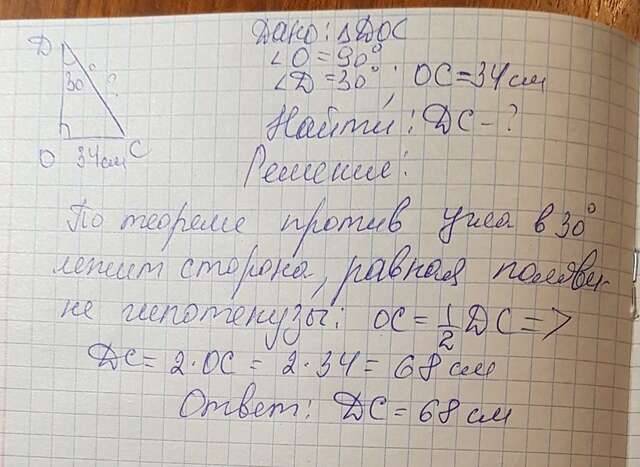 Д
30°
?
О 34см С
Дано: ΔDОС
∠О = 90°
∠D = 30°; ОС = 34 см
Найти: DС - ?
Решение:
По теореме против угла в 30°
лежит сторона, равная полови-
не гипотенузы: ОС = 1/2 DС =>
DС = 2·ОС = 2·34 = 68 см
Ответ: DС = 68 см